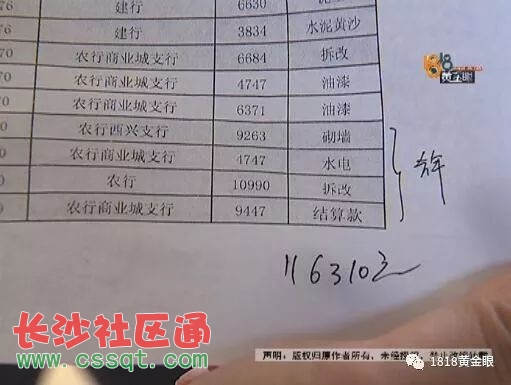 76 建行 6630
76 建行 3834 水泥黄沙
70 农行商业城支行 6684 拆改
0 农行商业城支行 4747 油漆
0 农行商业城支行 6371 油漆
0 农行西兴支行 9263 砌墙
0 农行商业城支行 4747 水电
0 农行 10990 拆改
0 农行商业城支行 9447 结算款
116310元
1818
黄金眼
长沙社区通
www.cssqt.com
声明:版权归原作者所有,未经授
1818黄金眼